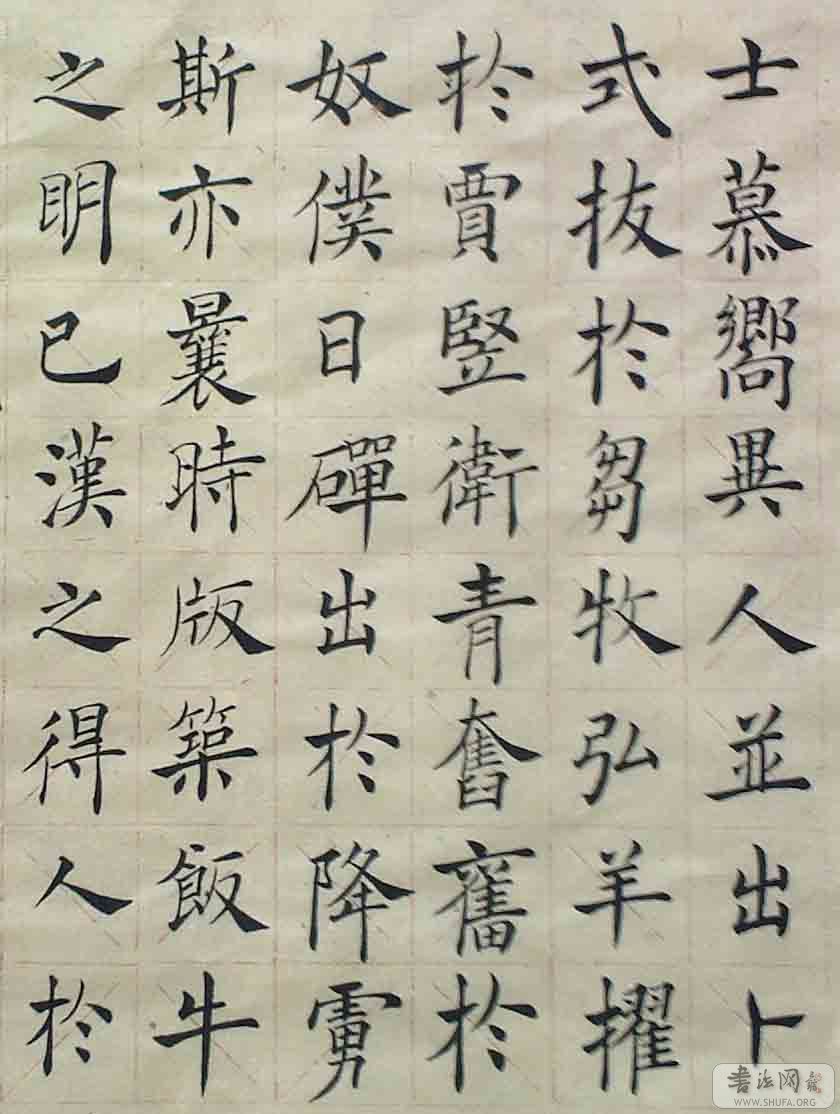 士慕嚮異人並出卜
式拔於芻牧弘羊擢
於賈竪衛青奮奮於
奴僕日磾出於降虜
斯亦曩時版築飯牛
之明已漢之得人於
书法网
WWW.SHUFA.ORG